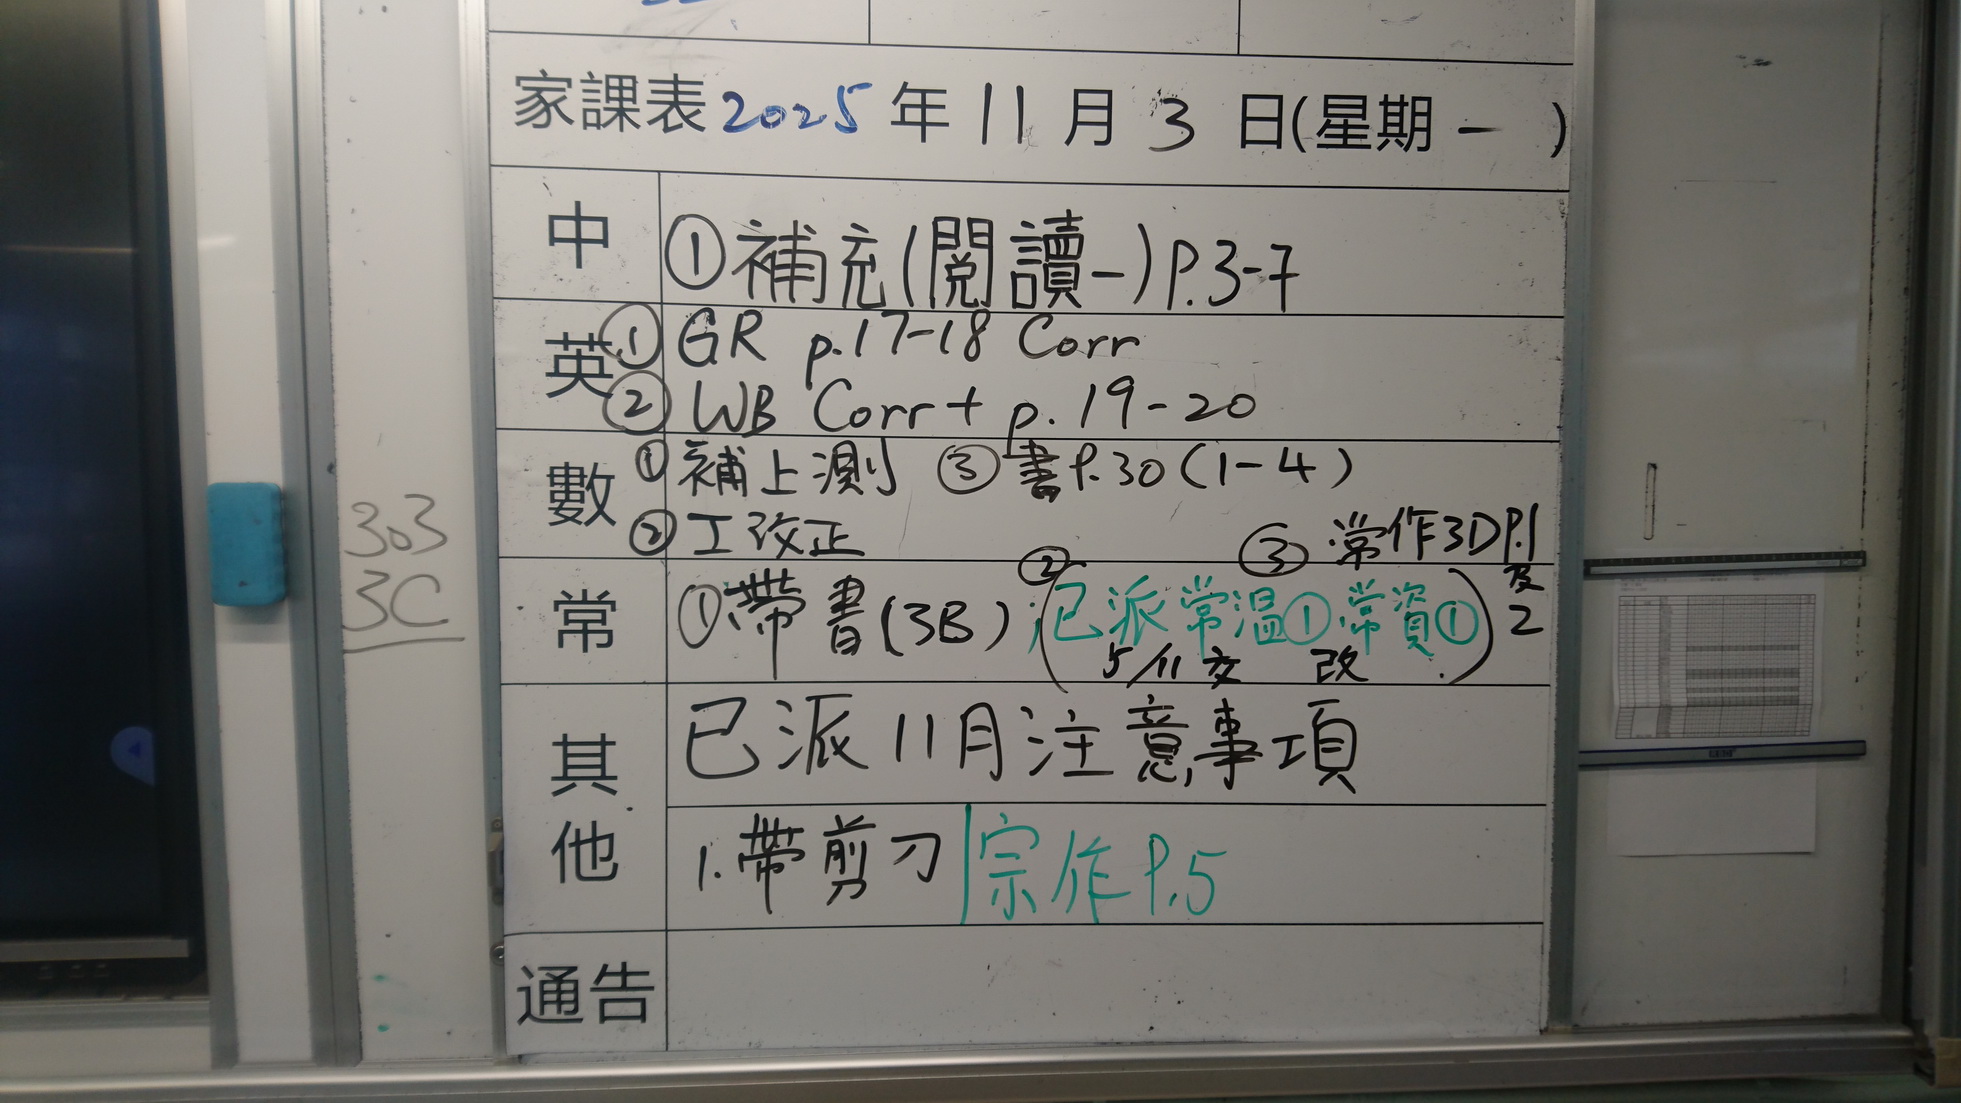 家課表 2025 年 11 月 3 日(星期 一 )
中
①補充(閱讀一)P.3-7
英
① GR p.17-18 Corr
② WB Corr + p.19-20
數
①補上測 ③書P.30(1-4)
②工改正
常
①帶書(3B);②(已派常溫①常資①)
5/11交 改
③常作3D P.1及2
其他
已派11月注意事項
1.帶剪刀|宗作P.5
通告
303
3C